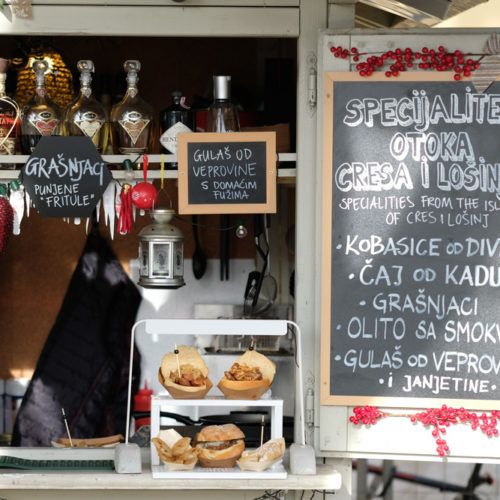 GRAŠNJACI
PUNJENE
"FRITULE"
GULAŠ OD
VEPROVINE
S DOMAĆIM
FUŽIMA
SPECIJALITE
OTOKA
CRESA I LOŠIN
SPECIALITIES FROM THE ISL
OF CRES I LOŠINJ
• KOBASICE OD DIV
• ČAJ OD KADU
• GRAŠNJACI
• OLITO SA SMOKV
• GULAŠ OD VEPROV
• I JANJETINE •